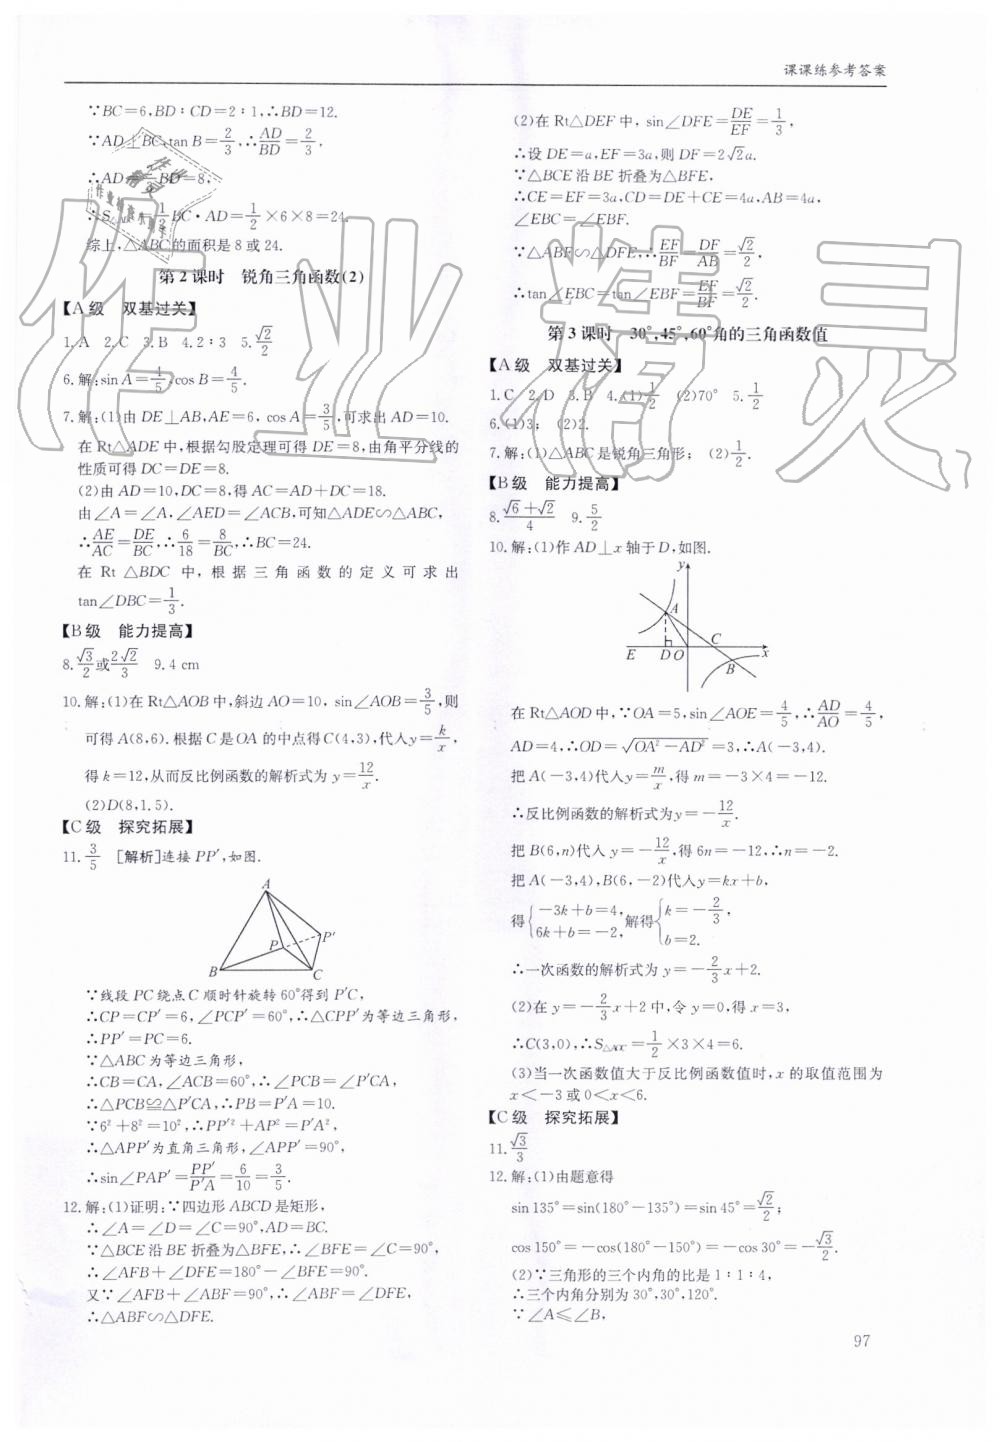 课课练参考答案
∵BC=6,BD∶CD=2∶1,∴BD=12.
∵AD⊥BC,tan B=2/3,∴AD/BD=2/3,
∴AD=2/3BD=8,
=1/2BC·AD=1/2×6×8=24.
综上,△ABC的面积是8或24.
第2课时 锐角三角函数(2)
【A级 双基过关】
1.A 2.C 3.B 4.2∶3 5.√2/2
6.解:sin A=4/5,cos B=4/5.
7.解:(1)由DE⊥AB,AE=6,cos A=3/5,可求出AD=10.
在Rt△ADE中,根据勾股定理可得DE=8,由角平分线的
性质可得DC=DE=8.
(2)由AD=10,DC=8,得AC=AD+DC=18.
由∠A=∠A,∠AED=∠ACB,可知△ADE∽△ABC,
∴AE/AC=DE/BC,∴6/18=8/BC,∴BC=24.
在Rt△BDC中,根据三角函数的定义可求出
tan∠DBC=1/3.
【B级 能力提高】
8.√3/2或2√2/3 9.4 cm
10.解:(1)在Rt△AOB中,斜边AO=10,sin∠AOB=3/5,则
可得A(8,6).根据C是OA的中点得C(4,3),代入y=k/x,
得k=12,从而反比例函数的解析式为y=12/x.
(2)D(8,1.5).
【C级 探究拓展】
11.3/5 [解析]连接PP′,如图.
A
P P′
B C
∵线段PC绕点C顺时针旋转60°得到P′C,
∴CP=CP′=6,∠PCP′=60°,∴△CPP′为等边三角形,
∴PP′=PC=6.
∵△ABC为等边三角形,
∴CB=CA,∠ACB=60°,∴∠PCB=∠P′CA,
∴△PCB≌△P′CA,∴PB=P′A=10.
∵6²+8²=10²,∴PP′²+AP²=P′A²,
∴△APP′为直角三角形,∠APP′=90°,
∴sin∠PAP′=PP′/P′A=6/10=3/5.
12.解:(1)证明:∵四边形ABCD是矩形,
∴∠A=∠D=∠C=90°,AD=BC.
∵△BCE沿BE折叠为△BFE,∴∠BFE=∠C=90°,
∴∠AFB+∠DFE=180°-∠BFE=90°.
又∵∠AFB+∠ABF=90°,∴∠ABF=∠DFE,
∴△ABF∽△DFE.
(2)在Rt△DEF中,sin∠DFE=DE/EF=1/3,
∴设DE=a,EF=3a,则DF=2√2a.
∵△BCE沿BE折叠为△BFE,
∴CE=EF=3a,CD=DE+CE=4a,AB=4a,
∠EBC=∠EBF.
∵△ABF∽△DFE,∴EF/BF=DF/AB=√2/2,
∴tan∠EBC=tan∠EBF=EF/BF=√2/2.
第3课时 30°,45°,60°角的三角函数值
【A级 双基过关】
1.C 2.D 3.B 4.(1)1/2 (2)70° 5.1/2
6.(1)3; (2)2.
7.解:(1)△ABC是锐角三角形; (2)1/2.
【B级 能力提高】
8.(√6+√2)/4 9.5/2
10.解:(1)作AD⊥x轴于D,如图.
y
A
C
E D O B x
在Rt△AOD中,∵OA=5,sin∠AOE=4/5,∴AD/AO=4/5,
AD=4,∴OD=√(OA²-AD²)=3,∴A(-3,4).
把A(-3,4)代入y=m/x,得m=-3×4=-12.
∴反比例函数的解析式为y=-12/x.
把B(6,n)代入y=-12/x,得6n=-12,∴n=-2.
把A(-3,4),B(6,-2)代入y=kx+b,
得{-3k+b=4, 6k+b=-2,解得{k=-2/3, b=2.
∴一次函数的解析式为y=-2/3x+2.
(2)在y=-2/3x+2中,令y=0,得x=3,
∴C(3,0),∴S△AOC=1/2×3×4=6.
(3)当一次函数值大于反比例函数值时,x的取值范围为
x<-3或0<x<6.
【C级 探究拓展】
11.√3/3
12.解:(1)由题意得
sin 135°=sin(180°-135°)=sin 45°=√2/2;
cos 150°=-cos(180°-150°)=-cos 30°=-√3/2.
(2)∵三角形的三个内角的比是1∶1∶4,
∴三个内角分别为30°,30°,120°.
∵∠A≤∠B,
97
作业精灵